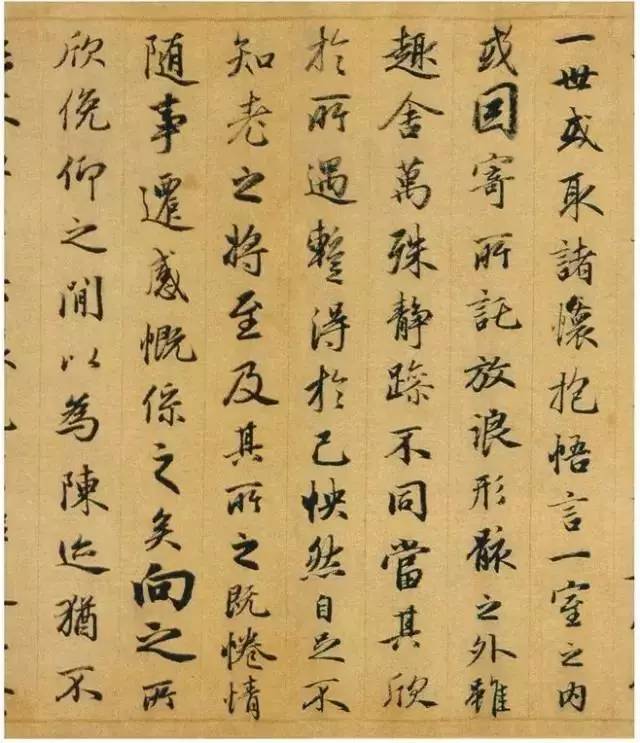 一世或取諸懷抱悟言一室之內
或因寄所託放浪形骸之外雖
趣舍萬殊静躁不同當其欣
於所遇暫得於己怏然自足不
知老之將至及其所之既惓情
隨事遷感慨係之矣向之所
欣俛仰之間以為陳迹猶不